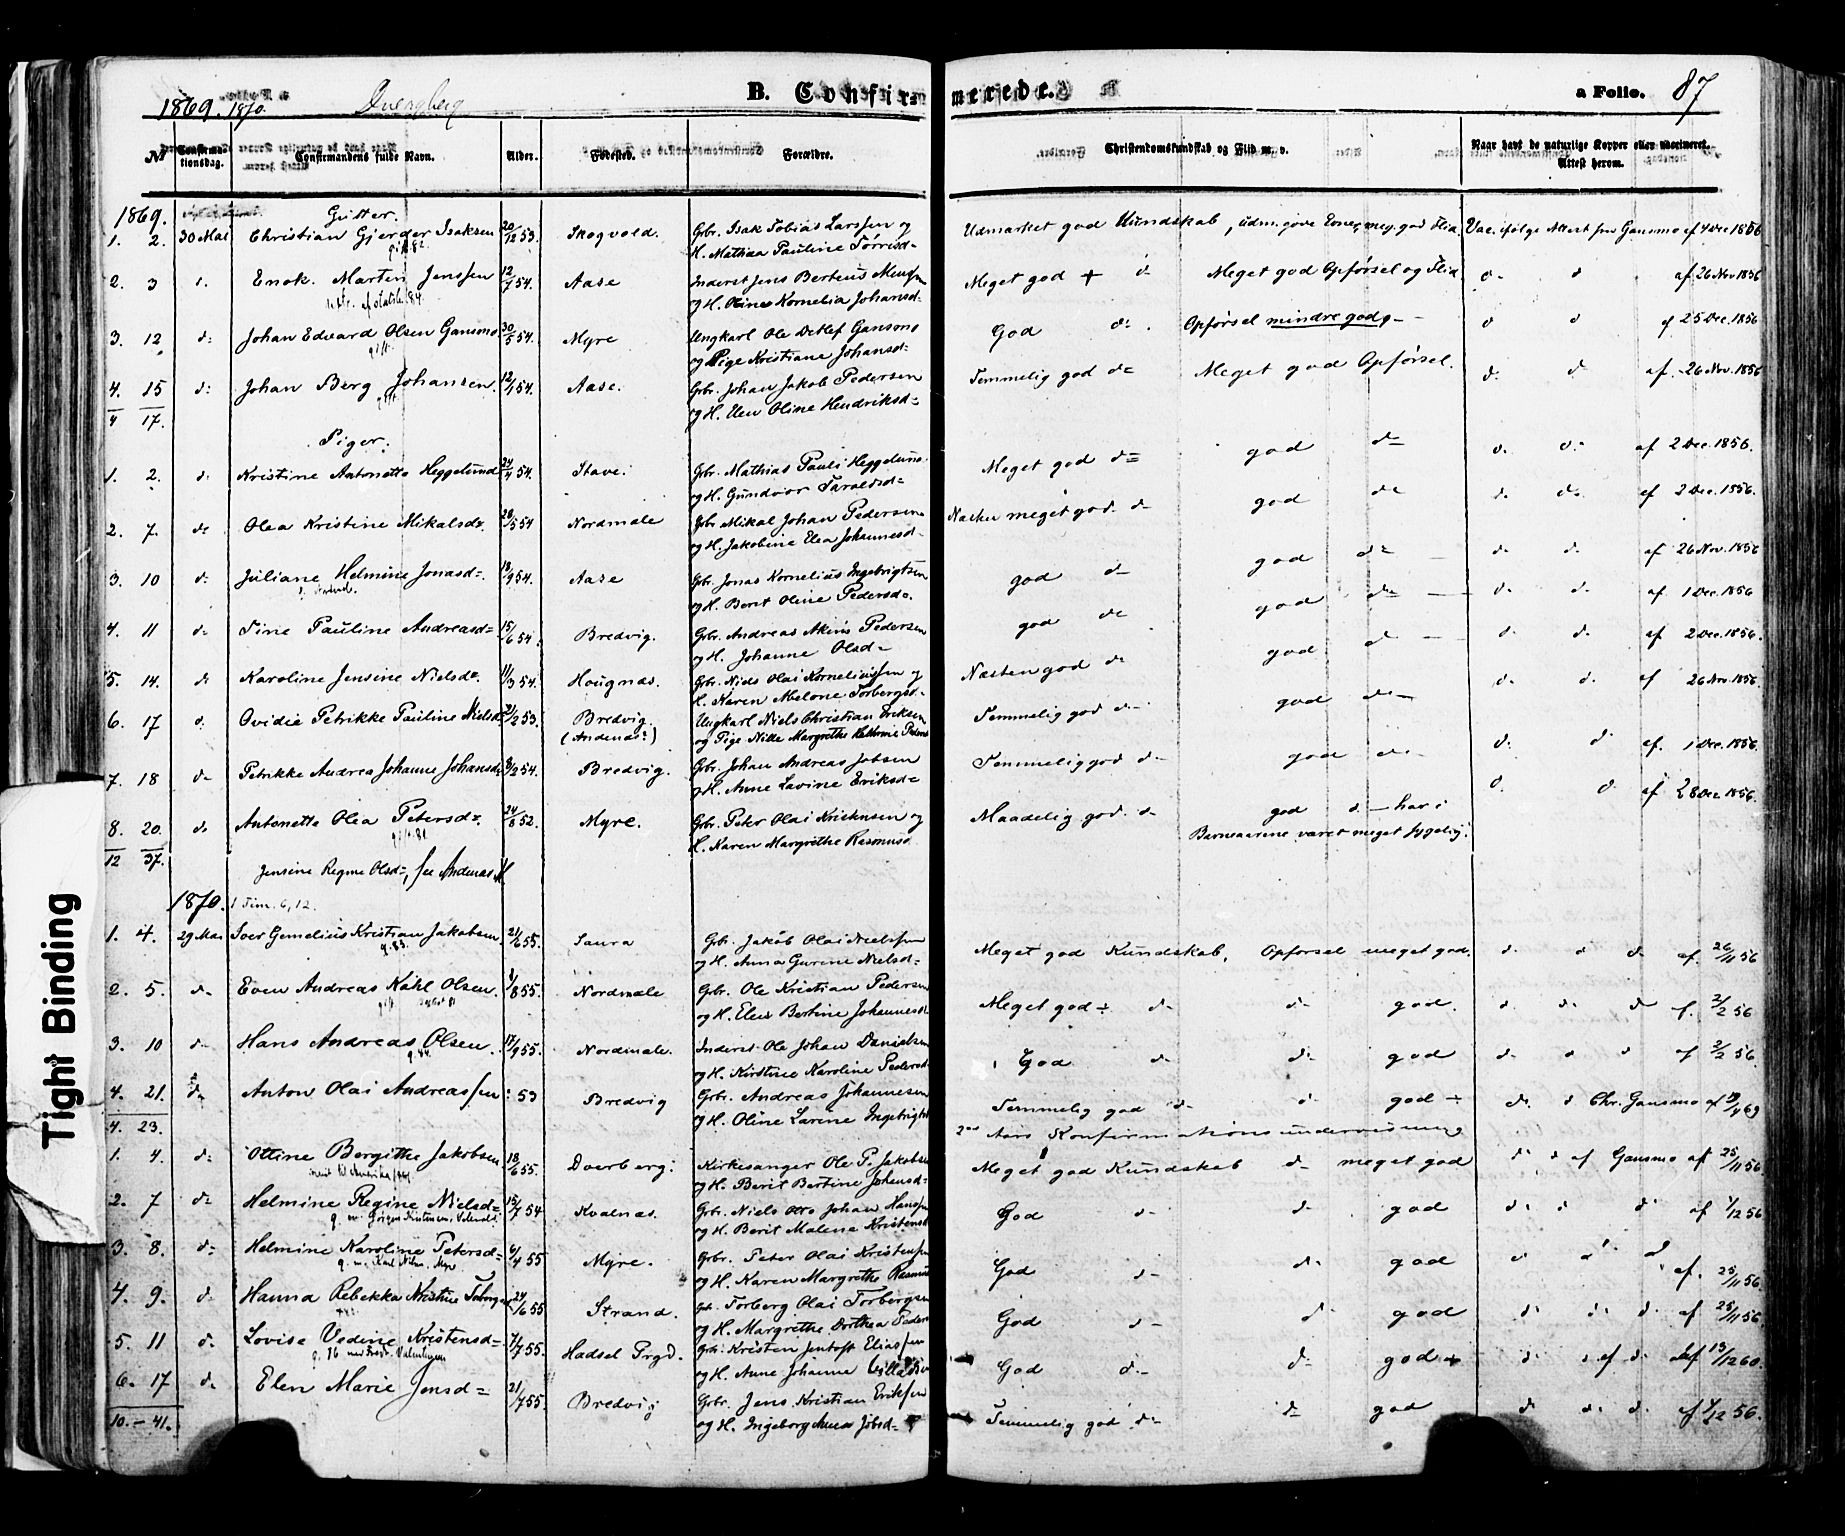 1869. 1870. Dverberg B. Confirmerede. a Folio. 87
No Confirmationsdag. Confirmandens fulde Navn. Alder. Fødested. Forældre. Christendomskundskab og Flid m. v. Naar havt de naturlige Kopper eller vaccineret.
Attest herom.
1869. Gutter.
1. 2. 30 Mai Christian Gjerder Isaksen 20/12 53. Skogvold. Gbr. Isak Tobias Larssen og Udmærket god Kundskab, udm. gode Evner, meg. god Flid. Vac. ifølge Attest fra Gansmo af 4 Dec 1856
gift 82. H. Mathea Pauline Torrisd=
2. 3 Enok Martin Jenssen 12/7 54. Aase Inderst Jens Berteus Mensen Meget god + d Meget god Opførsel og Flid d. d af 26 Nov 1856
og H. Oline Kornelia Johansd=
3. 12 d: Johan Edvard Olsen Gansmo 30/5 54. Myre Ungkarl Ole Detlef Gansmo God d: Opførsel mindre god d d af 25 Dec. 1856
gift. og Pige Kristiane Johansd=
4. 15 d: Johan Berg Johansen. 12/1 54. Aase. Gbr. Johan Jakob Pedersen Temmelig god d= Meget god Opførsel. d. d. af. 26 Nov. 1856
gift og H. Oline Hendriksd=
4 17.
Piger.
1. 2. d. Kristine Antonette Heggelund 24/4 54. Stave. Gbr. Mathias Pauli Heggelund Meget god d= god d= d. d: af 2 Dec. 1856.
og H. Gundvor Taraldsd=
2. 7. d: Olea Kristine Mikalsd=. 28/5 54 Nordmæle Gbr Mikal Johan Pedersen Næsten meget god. d= god d= d. d. af 2 Dec. 1856.
og H. Jakobine Elea Johannesd=
3. 10 d: Juliane Helmine Jonasd=. 18/9 54. Aase Gbr. Jonas Kornelius Ingebrigtsen god d= god d= d. d. af 26 Nov. 1856
og H. Berit Oline Pedersd=.
4. 11 d: Tine Pauline Andreasd= 15/6 54. Bredvig. Gbr. Andreas Akinis Pedersen god d= god d= d. d. af 1 Dec. 1856
og H. Johanne Olsd=
5. 14. d: Karoline Jensine Nielsd=. 11/3 54. Hougnæs. Gbr. Niels Olai Korneliussen og Næsten god d= god d= d. d. af 2 Dec. 1856.
H. Karen Malene Torbergsd.
6. 17 d. Ovidia Petrikke Pauline Nielsd= 21/2 53. Bredvig. Ungkarl Niels Christian Eriksen Temmelig god d= god d= d. d. af 26 Nov. 1856.
(Andenæs) og Pige Nille Margrethe Kathrine
7. 18 d= Petrikke Andrea Johanne Johansd= 8/2 54. Bredvig. Gbr. Johan Andreas Jobsen Temmelig god d= god d= d: d. af. 1 Dec. 1856.
og H. Anne Lavine Eriksd=
8. 20. d. Antonette Olea Petersd=. 24/8 52. Myre. Gbr. Peter Olai Kristensen og Maadelig god. d= god d= har i d. d. af 28 Dec 1856.
gift. 81. H. Karen Margrethe Rasmusd Barneaarene været meget sygelig.
12 37.
Jensine Regine Olsd=, see Andenæs
1870. 1 Tim. 6, 12.
1. 4. 29 Mai Iver Gemelius Kristian Jakobsen 21/6 55. Saura Gbr. Jakob Olai Nielssen Meget god Kundskab, Opførsel meget god. d d d af. 26/11 56
g. 83. og H. Anna Gurine Nielsd=
2. 5. d= Even Andreas Kahl Olsen. 1/8 55. Nordmæle Gbr. Ole Kristian Pedersen Meget god ÷ d= d= god. d. d. d af. 2/2 56
gift og H. Elen Bertine Johannesd=
3. 10 d= Hans Andreas Olsen. 17/9 55. Nordmæle. Inderst Ole Johan Danielsen God d= d= god d. d d af 2/2 56
og H. Kirstine Karoline Pedersd
4. 21. d= Anton Olai Andreassen 53 Bredvig Gbr. Andreas Johannesen Temmelig god d= d= god ÷ d. d Chr. Gansmo af 69
og H. Oline Larine Ingebrigtsd 2det Aars Konfirmationsundervisning
4. 23.
1. 4. d= Ottine Bergithe Jakobsen 18/6 55. Dverberg. Kirkesanger Ole P. Jakobsen Meget god Kundskab d= meget god d. d af Gansmo af 25/11 56
og H. Berit Bertine Johansd=
2. 7 d= Helmine Regine Nielsd= 15/7 54 Kvalnæs. Gbr. Niels Otto Johan Hansen God d= d= god d. d. d af 1/12 56
og H. Berit Malena Kristensd
3. 8. d= Helmine Karoline Petersd= 6/4 55 Myre. Gbr. Peter Olai Kristensen God d= d= god d d d af. 25/11 56.
og H. Karen Margrethe Rasmusd
4. 9. d. Hanna Rebekka Kristine Torbergsd 24/6 55 Strand. Gbr. Torberg Olai Torbergsen God d= d= god d. d. d. af 25/11 56
og H. Margrethe Dorthea Peders
5. 11 d. Lovise Vedine Kristensd= 7/7 55. Hadsel Prgd. Gbr. Kristen Jentoft Eliassen God d= d= god + d. d af d. af 19/12 60.
og H. Anne Johanna
6. 17 d= Elen Marie Jensd= 21/7 55. Bredvig Gbr. Jens Kristian Eriksen Temmelig god d= d= god d. d. d. af 1/12 56.
og H. Ingeborg Anna Jobsd=
10. – 41.
Tight Binding